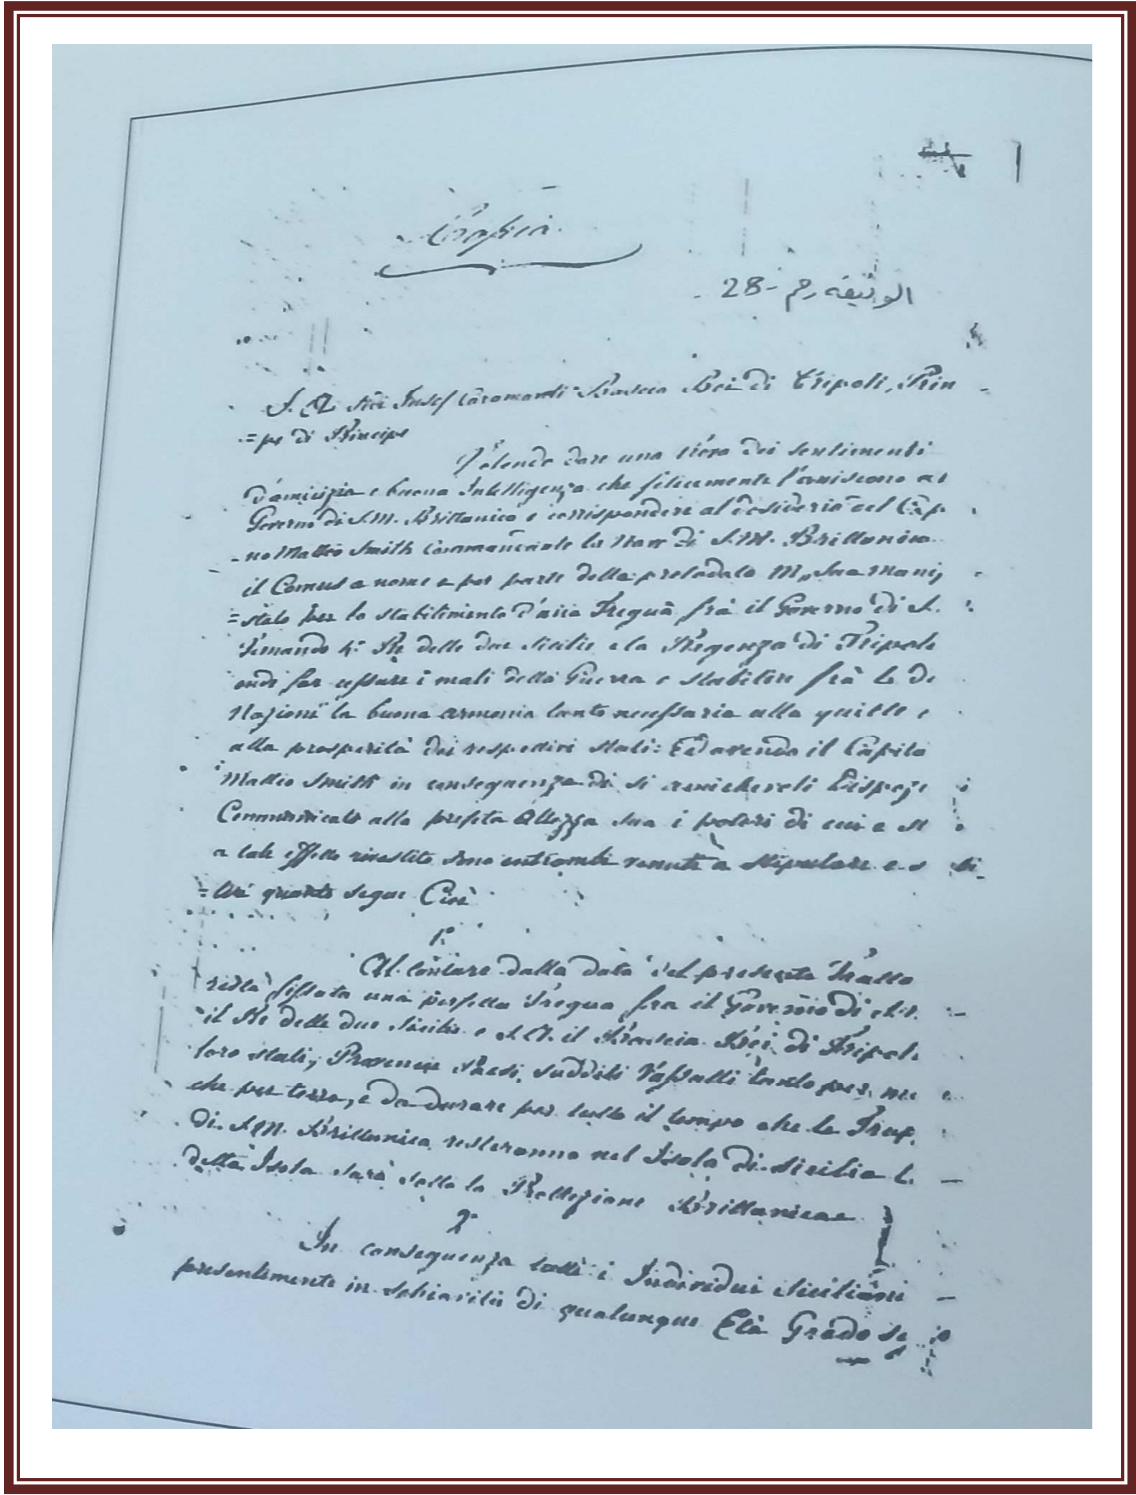 الوثيقه رقم - 28 -
S. A. Sidi Jusef Caramanli Bascia Bei di Tripoli, Prin
=pe di Principi
Volendo dare una Prova dei sentimenti
d'amicizia e buona Intelligenza che felicemente l'uniscono al
Governo di S.M. Brittanica e corrispondere al desiderio del Cap
=no Matteo Smith Comandante la Nave di S.M. Brittanica
il Comus a nome e per parte della prelodata M. Sua Mani
=stato per lo stabilimento d'una Tregua frà il Governo di S.
Ferdinando 4º Re delle due Sicilie e la Regenza di Tripoli
onde far cessare i mali della Guerra e stabilire frà le D
Nazioni la buona armonia tanto necessaria alla quiete e
alla prosperità dei respettivi stati: Ed avendo il Capita
Matteo Smith in conseguenza di si amichevoli Dispozi
Communicato alla prefata Altezza sua i poteri di cui e st
a tale effetto rivestito sono entrambi venuti a stipulare e s bi
=lire quanto segue Cioè
1º
Al contare dalla data del presente Tratto
resta fissata una perfetta Tregua fra il Governo di S.M.
il Re delle due Sicilie e S.A. il Bascia Bei di Tripoli
loro stati, Provincie Paesi, sudditi Vassalli tanto per m e
che per terra, e da durare per tutto il tempo che le Trup.
di S.M. Brittanica resteranno nel Isola di Sicilia
detta Isola sarà sotto la Protezione Brittanica
2º
In conseguenza tutti i Individui Siciliani
presentemente in schiavitù di qualunque Età Grado Se o